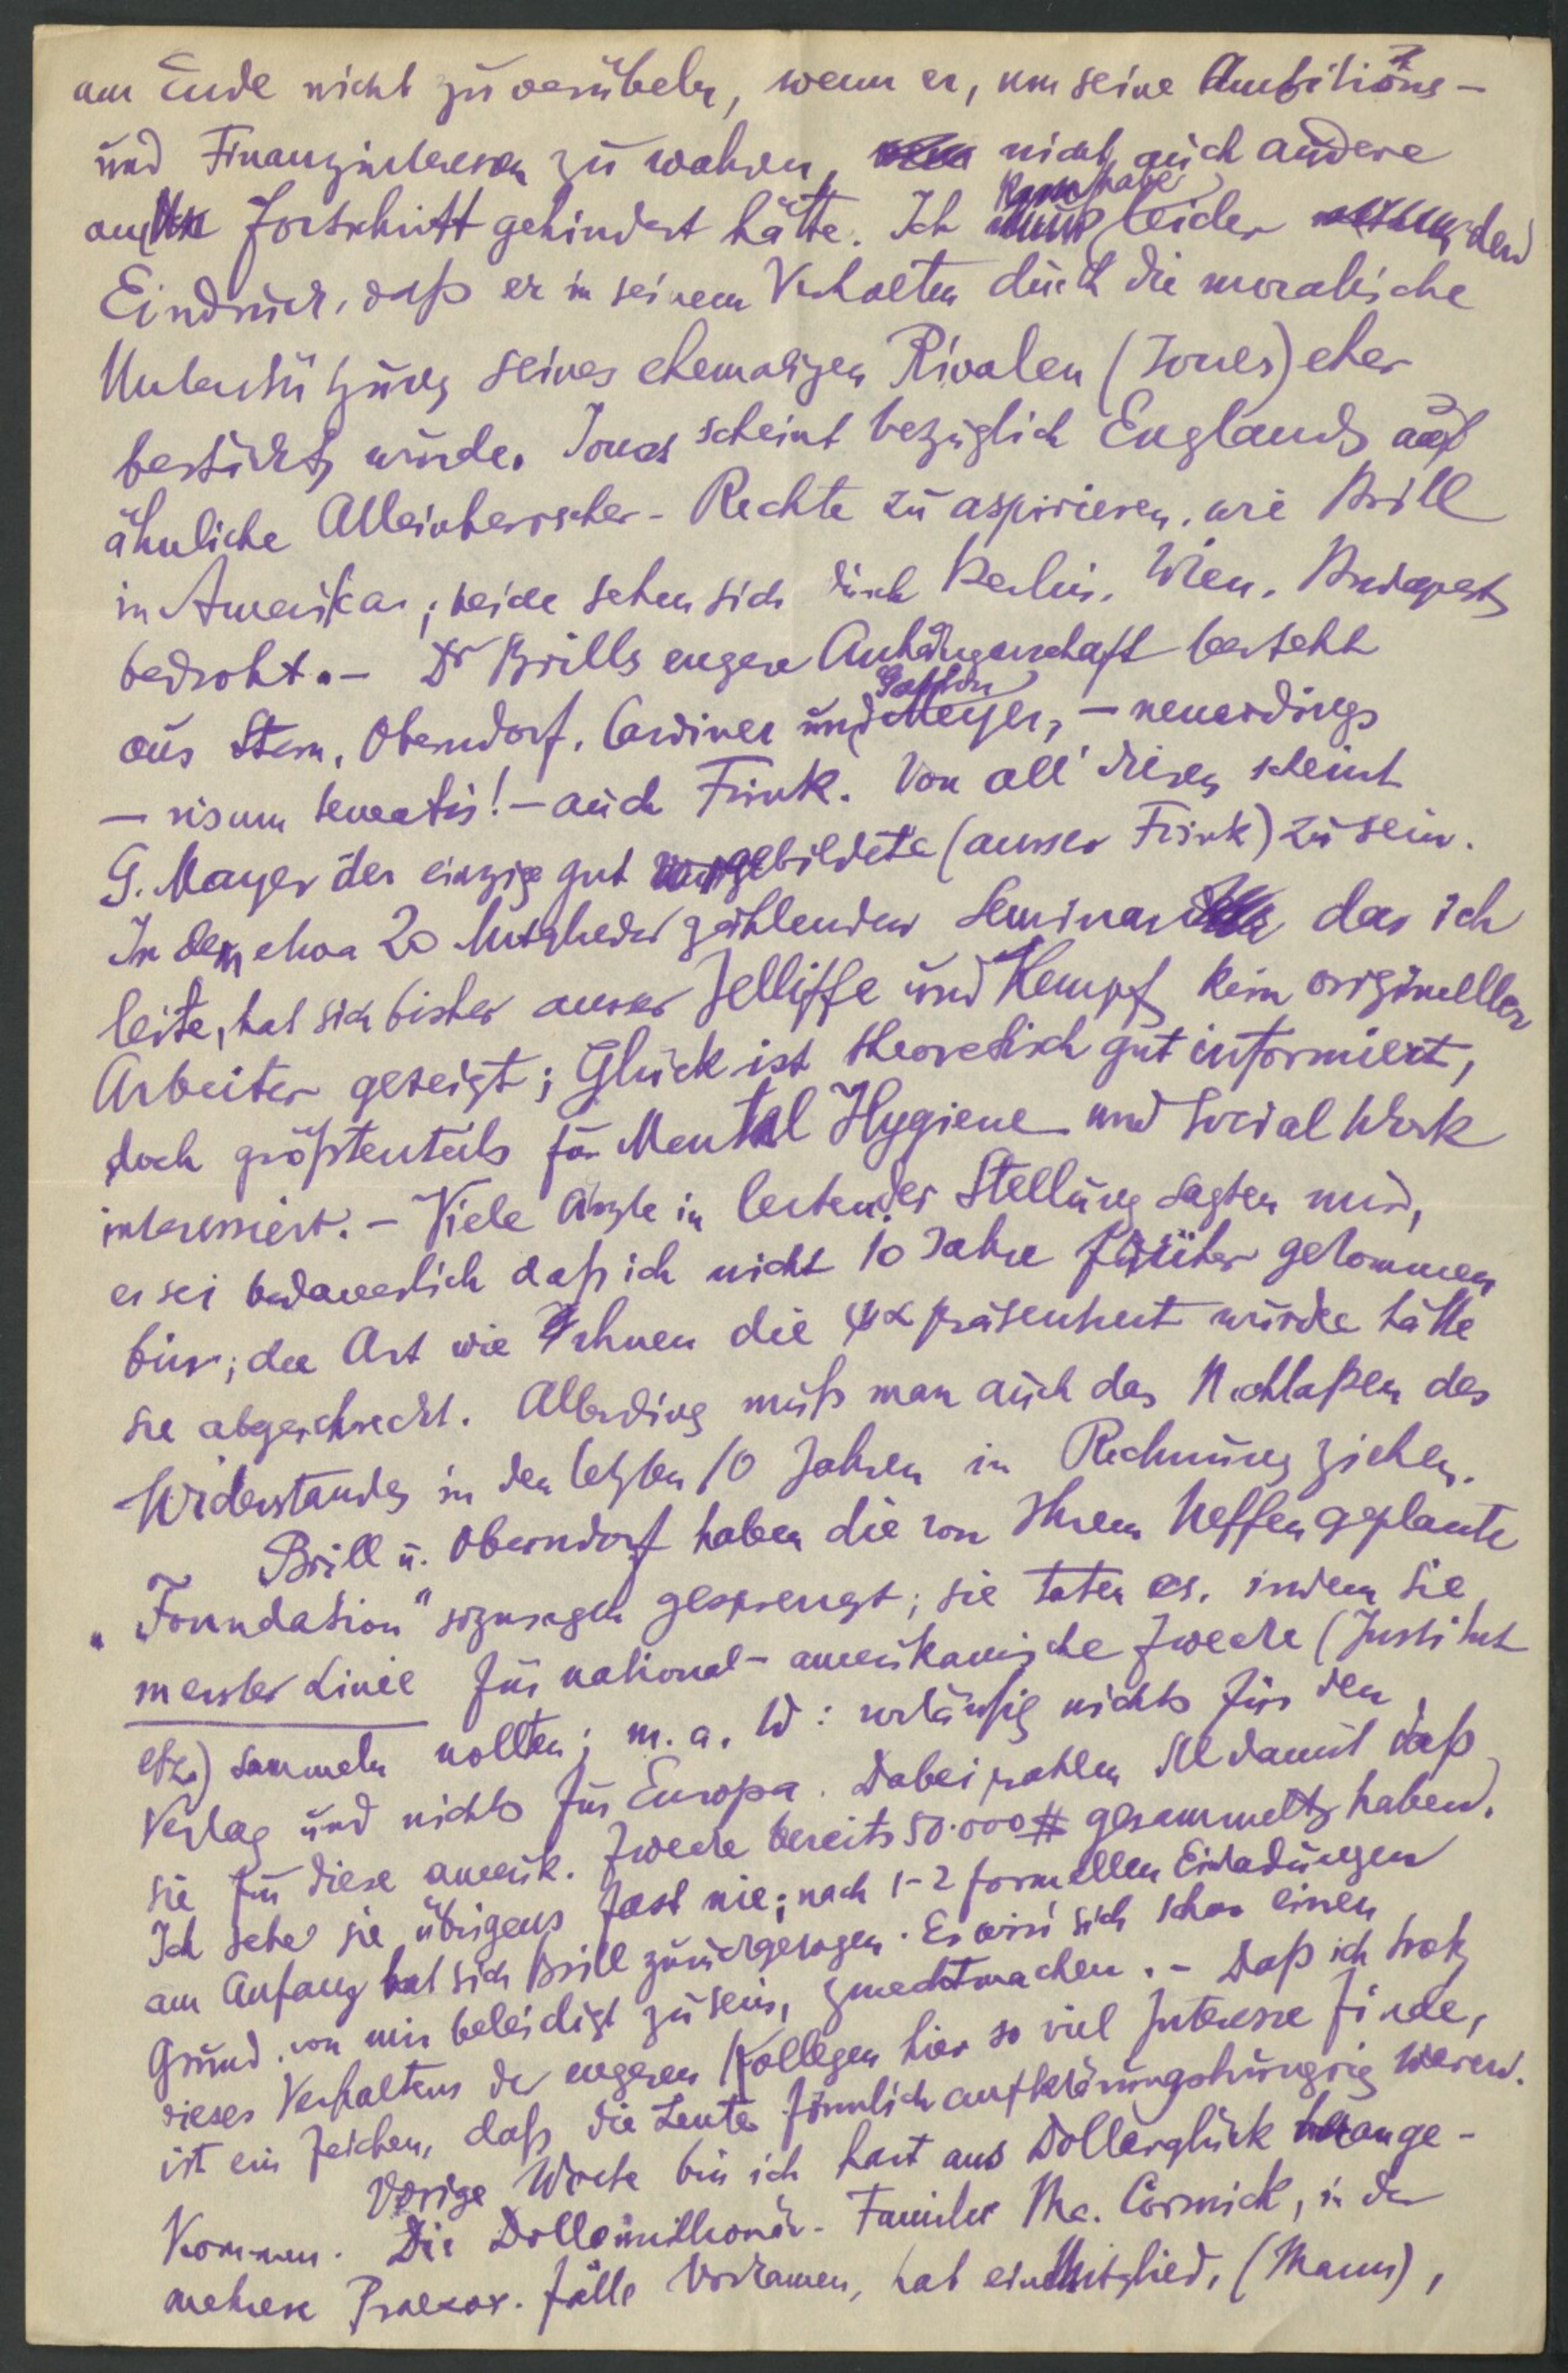 am Ende nicht zu verübeln, wenn er, um seine Ambitions-
und Finanzinteressen zu wahren, nicht auch andere
am Fortschritt gehindert hätte. Ich habe leider den
Eindruck, daß er in seinem Verhalten durch die moralische
Unterstützung seines ehemaligen Rivalen (Jones) eher
bestärkt wurde. Jones scheint bezüglich Englands auf
ähnliche Alleinherrscher-Rechte zu aspirieren, wie Brill
in Amerika; beide sehen sich durch Berlin, Wien, Budapest
bedroht. – Dr Brills engere Anhängerschaft besteht
aus Stern, Oberndorf, Cardiner und Meyer, – neuerdings
– risum teneatis! – auch Frink. Von all' diesen scheint
G. Mayer der einzige gut gebildete (ausser Frink) zu sein.
In dem etwa 20 Mitglieder zählenden Seminar das ich
leite, hat sich bisher ausser Jelliffe und Kempf kein origineller
Arbeiter gezeigt; Glück ist theoretisch gut informiert,
doch größtenteils für Mental Hygiene und Social Work
interessiert. – Viele Ärzte in leitender Stellung sagten mir,
es sei bedauerlich daß ich nicht 10 Jahre früher gekommen
bin; die Art wie Ihnen die ψα präsentiert wurde hätte
sie abgeschreckt. Allerding muß man auch das Nachlaßen des
Widerstandes in den letzten 10 Jahren in Rechnung ziehen.
Brill u. Oberndorf haben die von Ihrem Neffen geplante
„Foundation" sozusagen gesprengt; sie taten es, indem Sie
in erster Linie für national-amerikanische Zwecke (Institut
etz.) sammeln wollten; m. a. W: vorläufig nichts für den
Verlag und nichts für Europa. Dabei prahlen sie damit daß
sie für diese amerik. Zwecke bereits 50.000 $ gesammelt haben.
Ich sehe sie übrigens fast nie; nach 1-2 formellen Einladungen
am Anfang hat sich Brill zurückgezogen. Er wird sich schon einen
Grund, von mir beleidigt zu sein, zurechtmachen. – Daß ich trotz
dieses Verhaltens der engeren Kollegen hier so viel Interesse finde,
ist ein Zeichen, daß die Leute förmlich aufklärungshungrig waren.
Vorige Woche bin ich hart ans Dollarglück angekommen.
Die Dollarmillionär-Familie Mc. Cormick, in der
mehrere Praecox-fälle vorkamen, hat ein Mitglied, (Mann),